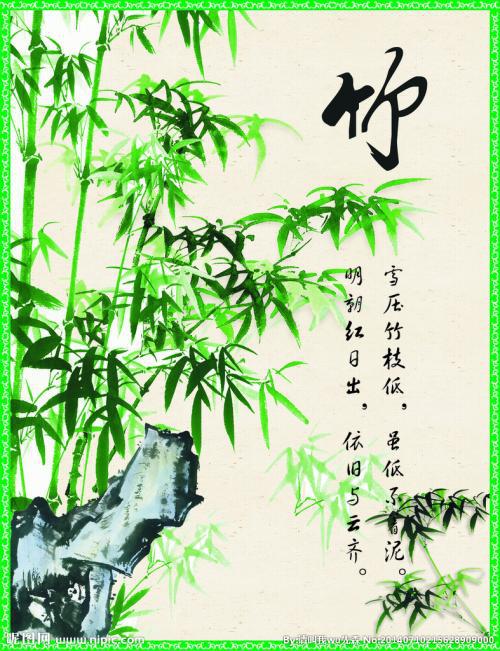 竹
雪压竹枝低，虽低不着泥。
明朝红日出，依旧与云齐。
昵图网 www.nipic.com
By:请叫我wu先森 No:20140710215628909000